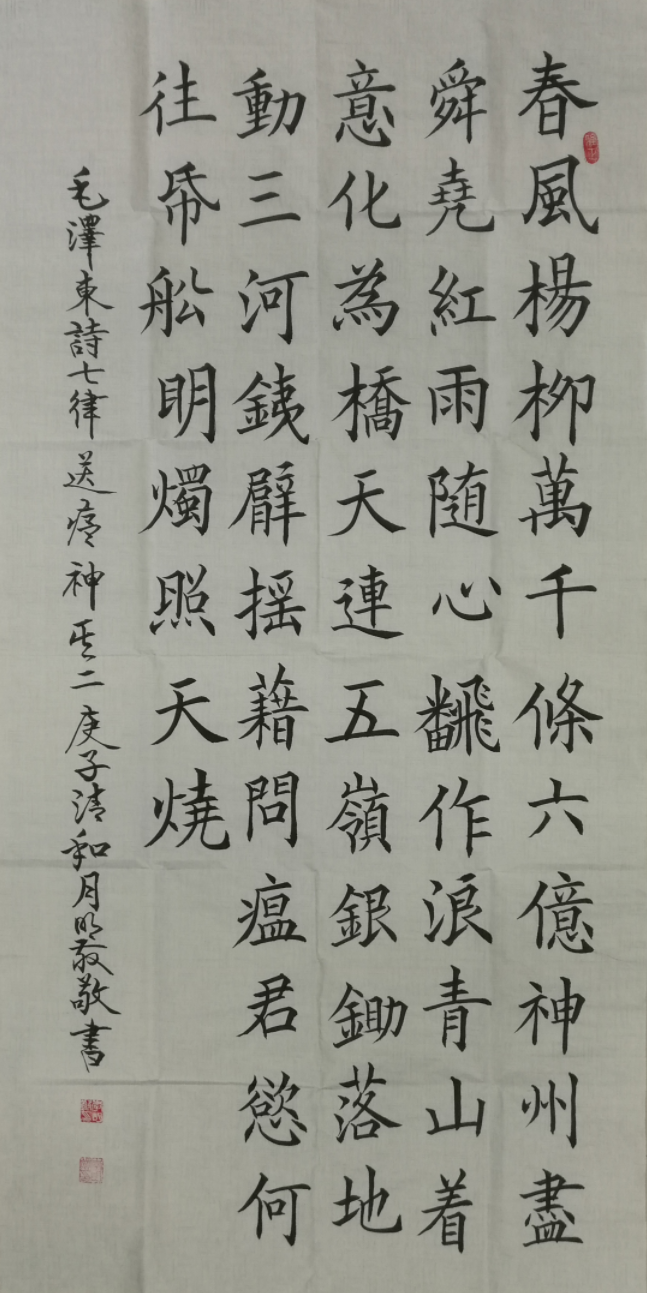 春風楊柳萬千條六億神州盡
舜堯紅雨随心飜作浪青山着
意化為橋天連五嶺銀鋤落地
動三河銕臂摇藉問瘟君慾何
往帋船明燭照天燒
毛澤東詩七律送瘟神其二庚子清和月敬書